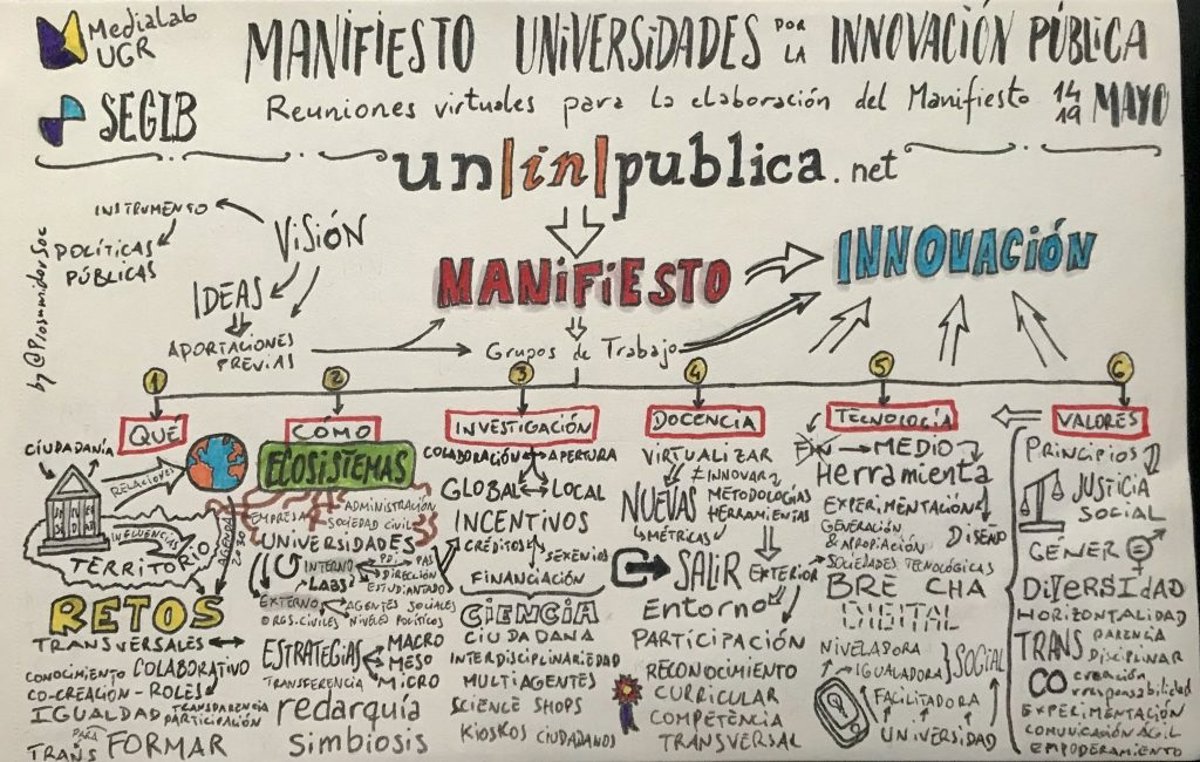 MediaLab
UGR
SEGIB
MANIFIESTO UNIVERSIDADES POR LA INNOVACIÓN PÚBLICA
Reuniones virtuales para la elaboración del Manifiesto 14 19 MAYO
un|in|publica.net
by @ProsumidorSoc
INSTRUMENTO
POLÍTICAS
PÚBLICAS
VISIÓN
IDEAS
APORTACIONES
PREVIAS
MANIFIESTO
INNOVACIÓN
Grupos de Trabajo
1
QUÉ
CIUDADANÍA
RELACIONES
INFLUENCIAS
TERRITORIO
AGENDA
2030
RETOS
TRANSVERSALES
CONOCIMIENTO COLABORATIVO
CO-CREACIÓN - ROLES
IGUALDAD TRANSPARENCIA
PARTICIPACIÓN
PARA
TRANS FORMAR
2
CÓMO
ECOSISTEMAS
EMPRESA
ADMINISTRACIÓN
SOCIEDAD CIVIL
UNIVERSIDADES
INTERNO
PDI PAS
LABS
DIRECCIÓN
ESTUDIANTADO
EXTERNO
AGENTES SOCIALES
ORGS. CIVILES NIVELES POLÍTICOS
ESTRATEGIAS
MACRO
MESO
MICRO
TRANSFERENCIA
redarquía
simbiosis
3
INVESTIGACIÓN
COLABORACIÓN APERTURA
GLOBAL LOCAL
INCENTIVOS
CRÉDITOS SEXENIOS
FINANCIACIÓN
CIENCIA
CIUDADANA
INTERDISCIPLINARIEDAD
MULTIAGENTES
SCIENCE SHOPS
KIOSKOS CIUDADANOS
4
DOCENCIA
VIRTUALIZAR
≠ INNOVAR
NUEVAS METODOLOGÍAS
HERRAMIENTAS
MÉTRICAS
SALIR EXTERIOR
Entorno
PARTICIPACIÓN
RECONOCIMIENTO
CURRICULAR
COMPETENCIA
TRANSVERSAL
5
TECNOLOGÍA
FIN MEDIO
Herramienta
EXPERIMENTACIÓN
GENERACIÓN
& APROPIACIÓN
DISEÑO
SOCIEDADES TECNOLÓGICAS
BRECHA
DIGITAL
NIVELADORA
IGUALADORA
SOCIAL
FACILITADORA
UNIVERSIDAD
6
VALORES
PRINCIPIOS
JUSTICIA
SOCIAL
GÉNERO
DIVERSIDAD
HORIZONTALIDAD
TRANS PARENCIA
DISCIPLINAR
CO creación
rresponsabilidad
EXPERIMENTACIÓN
COMUNICACIÓN ÁGIL
EMPODERAMIENTO